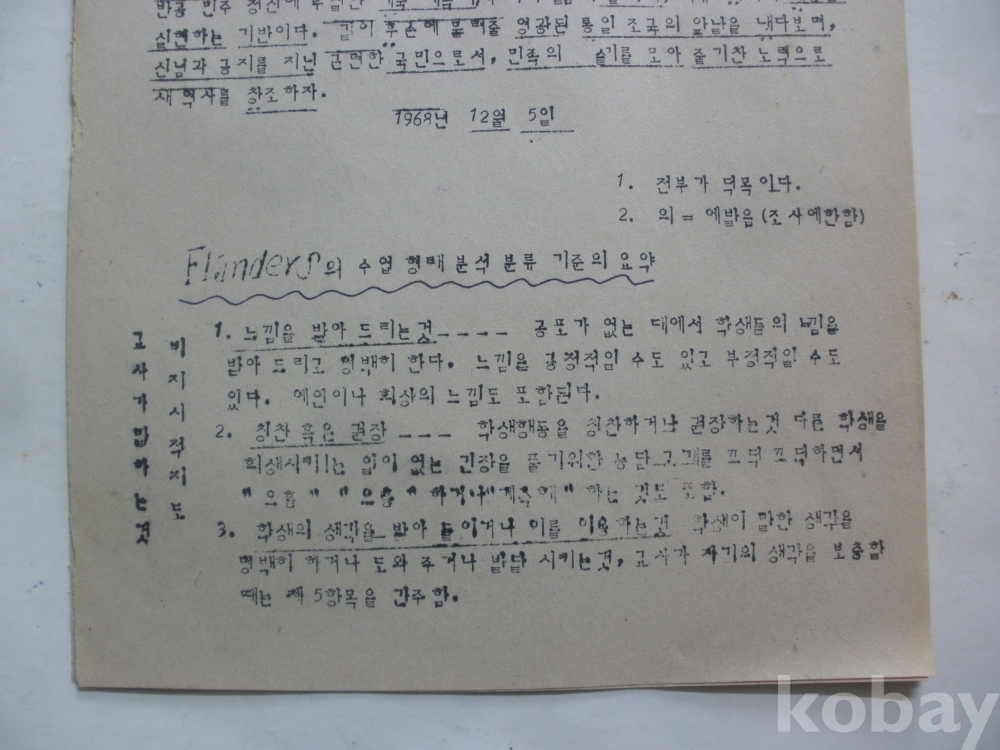 반공 민주 정신에
실현하는 기반이다. 길이 후손에 물려줄 영광된 통일 조국의 앞날을 내다보며,
신념과 긍지를 지닌 근면한 국민으로서, 민족의 슬기를 모아 줄기찬 노력으로
새 역사를 창조하자.
1968년 12월 5일
1. 전부가 덕목이다.
2. 의 = 에발음 (조사에한함)
Flanders의 수업 형태 분석 분류 기준의 요약
교사가 말하는것
비지시적지도
1. 느낌을 받아 드리는것 ---- 공포가 없는 데에서 학생들의 느낌을
받아 드리고 명백히 한다. 느낌은 긍정적일 수도 있고 부정적일 수도
있다. 예언이나 회상의 느낌도 포함된다.
2. 칭찬 혹은 권장 --- 학생행동을 칭찬하거나 권장하는것 다른 학생을
희생시키는 일이 없는 긴장을 풀기위한 농담 고개를 끄덕 끄덕하면서
"으흠" "으응" 하거나 "계속해" 하는 것도 포함.
3. 학생의 생각을 받아 들이거나 이를 이용하는것 학생이 말한 생각을
명백히 하거나 도와 주거나 발달 시키는것, 교사가 자기의 생각을 보충할
때는 제 5항목을 간주함.
kobay